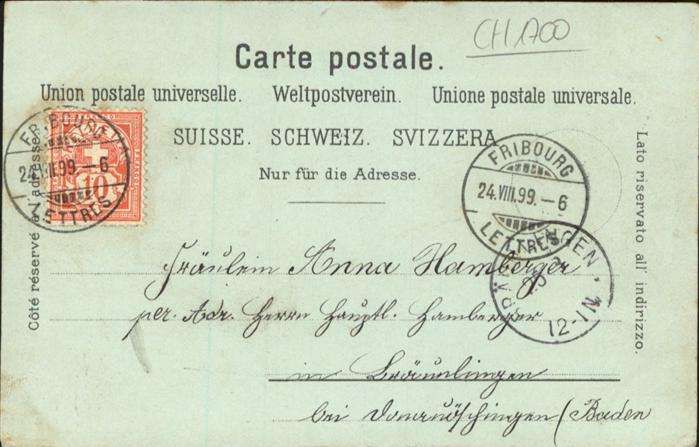 CH 1700
Carte postale.
Union postale universelle. Weltpostverein. Unione postale universale.
SUISSE. SCHWEIZ. SVIZZERA
Nur für die Adresse.
Côté réservé adresse
Lato riservato all' indirizzo.
FRIBOURG
24.VIII.99.–6
LETTRES
10
FRIBOURG
24.VIII.99.–6
LETTRES
12-1N.
Fräulein Anna Hamberger
per. Adr. Herrn Hauptl. Hamberger
in Bräunlingen
bei Donaueschingen (Baden